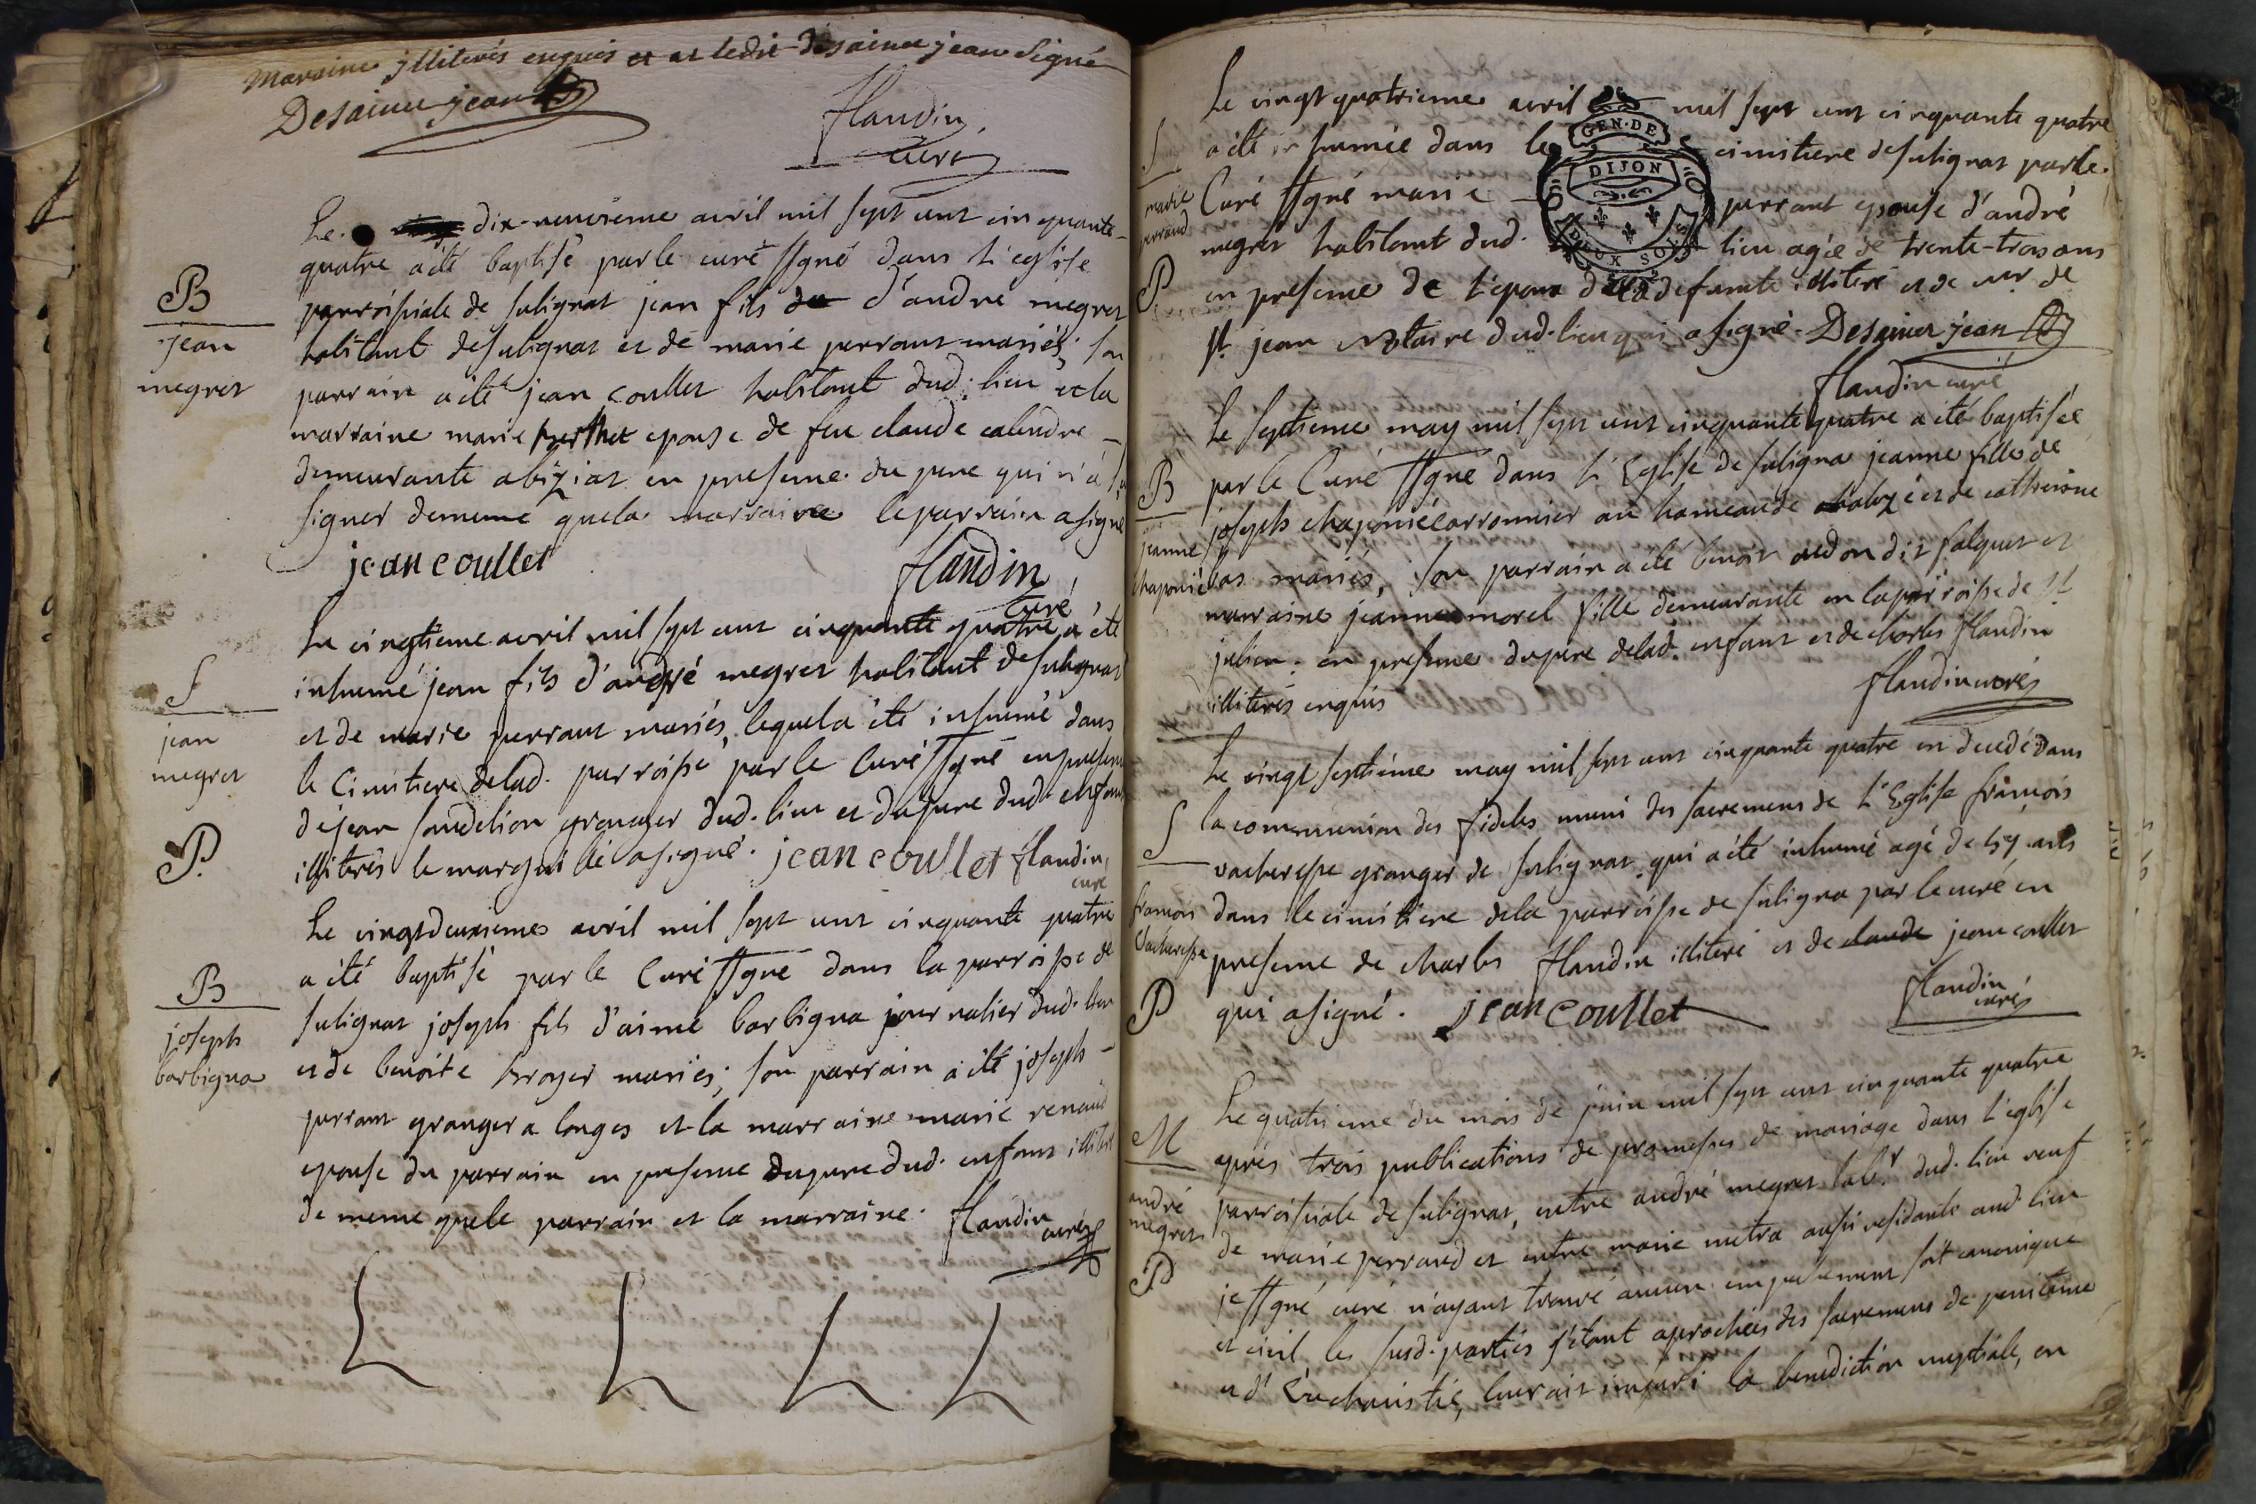 Maraine jlliterés enquis et at ledit Desaincs jean signé
Desaincs jean
flandin
curé
Le dix-neuvieme avril mil sept cent cinquante-
quatre a été baptisé par le curé ssgné dans l'eglise
parroissiale de sulignat jean fils d'andré megret
habitant de sulignat et de marie perrant mariés; son
parrain a été jean coullet habitant dud. lieu et la
marraine marie perthet epouse de feu claude calendre
demeurante a biziat en presence du pere qui n'a sçu
signer de meme que la marraine le parrain a signé
jean coullet
flandin
curé
B
jean
megret
Le vingtieme avril mil sept cent cinquante quatre a été
inhumé jean fils d'andré megret habitant de sulignat
et de marie perrant mariés, lequel a été inhumé dans
le Cimitiere de lad. parroisse par le Curé ssgné en presence
de jean granger dud. lieu et du pere dud. enfant
illiterés le a signé. jean coullet flandin
curé
S
jean
megret
P.
Le vingt deuxieme avril mil sept cent cinquante quatre
a été baptisé par le Curé ssgné dans la parroisse de
sulignat joseph fils d'aimé barbigna journalier dud. lieu
et de benoite broyer mariés; son parrain a été joseph
perrant granger a longes et la marraine marie renaud
epouse du parrain en presence du pere dud. enfant illiteré
de meme que le parrain et la marraine. flandin
curé
B
joseph
barbigna
Le vingt quatrieme avril mil sept cent cinquante quatre
a été inhumée dans le cimitiere de sulignat par le
Curé ssgné marie perrant epouse d'andré
megret habitant dud. lieu agée de trente-trois ans
en presence de l'epoux de la defunte illiteré et de mr. de
st. jean notaire dud. lieu qui a signé. Desaincs jean
flandin curé
GEN. DE
DIJON
DEUX SOLS
S
marie
perrand
P.
Le septieme may mil sept cent cinquante quatre a été baptisée
par le Curé ssgné dans l'Eglise de suligna jeanne fille de
joseph chaponié au hameau de et de catherine
mariés, son parrain a été benoit dit falquet et
marraine jeanne morel fille demeurante en la parroisse de st
julien. en presence du pere de lad. enfant et de charles flandin
illiterés enquis
flandin curé
B
jeanne
chaponié
Le vingt septieme may mil sept cent cinquante quatre est decedé dans
la communion des fideles muni des sacremens de l'Eglise françois
vacheresse granger de sulignat qui a été inhumé agé de ans
dans le cimitiere de la parroisse de suligna par le curé en
presence de charles flandin illiteré et de claude jean coullet
qui a signé. jean coullet
flandin
curé
S
françois
vacheresse
P
Le quatrieme du mois de juin mil sept cent cinquante quatre
après trois publications de promesses de mariage dans l'eglise
parroissiale de sulignat, entre andré megret labr. dud. lieu veuf
de marie perrand et entre marie metra aussi residante aud. lieu
je ssgné curé n'ayant trouvé aucun empechement soit canonique
et civil, les susd. parties s'étant aprochées des sacremens de penitence
et d'Eucharistie, leur ait imparti la benediction nuptiale, en
M
andré
megret
P